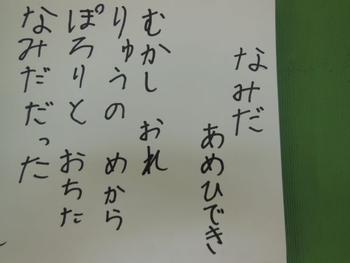 なみだ
あめひでき
むかし おれ
りゅうの めから
ぽろりと おちた
なみだだった